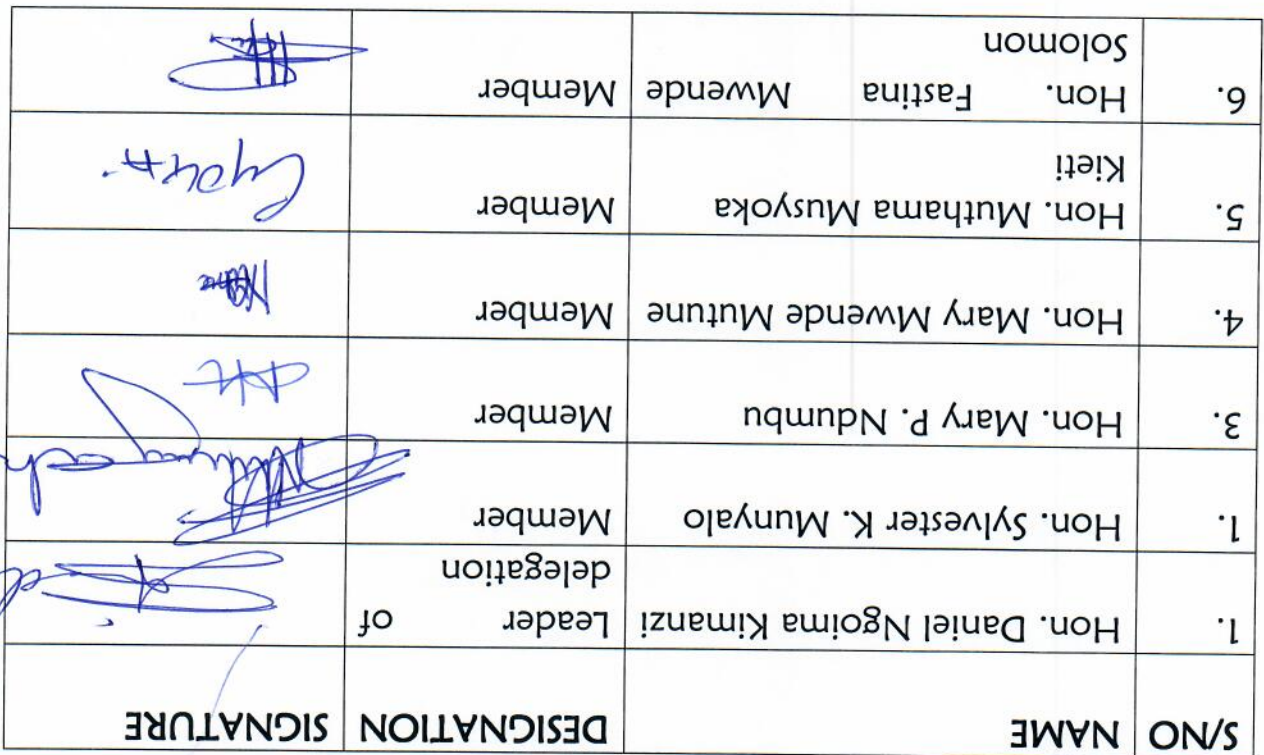 S/NO NAME DESIGNATION SIGNATURE
1. Hon. Daniel Ngoima Kimanzi Leader of
delegation
1. Hon. Sylvester K. Munyalo Member
3. Hon. Mary P. Ndumbu Member
4. Hon. Mary Mwende Mutune Member
5. Hon. Muthama Musyoka Member
Kieti
6. Hon. Fastina Mwende Member
Solomon